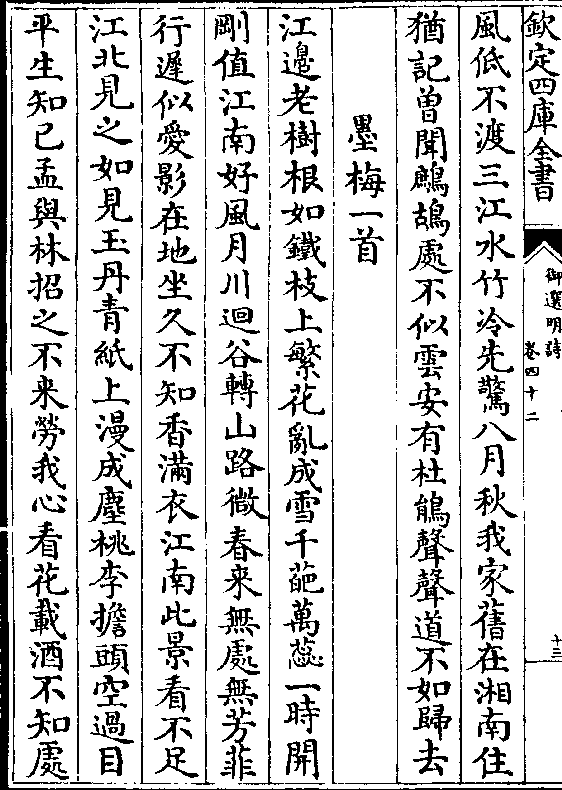 欽定四庫全書
御選明詩
卷四十二
十三
風低不渡三江水竹冷先驚八月秋我家舊在湘南住
猶記曽聞鷓鴣處不似雲安有杜鵑聲聲道不如歸去
墨梅一首
江邊老樹根如鐵枝上繁花亂成雪千葩萬蕊一時開
剛值江南好風月川迴谷轉山路微春来無處無芳菲
行遲似愛影在地坐久不知香滿衣江南此景看不足
江北見之如見玉丹青紙上漫成塵桃李擔頭空過目
平生知已孟與林招之不来勞我心看花載酒不知處